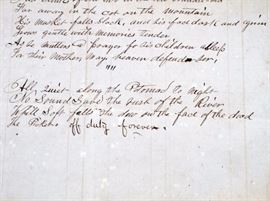 Far away in the cot on the mountain
His musket falls slack, and his face dark and grim
Grows gentle with memories tender
As he mutters a prayer for his children asleep
For their Mother, may heaven defend her!
""
All quiet along the Potomac To night
No Sound Save the rush of the River
While Soft falls the dew on the face of the dead
The Pickets off duty forever.